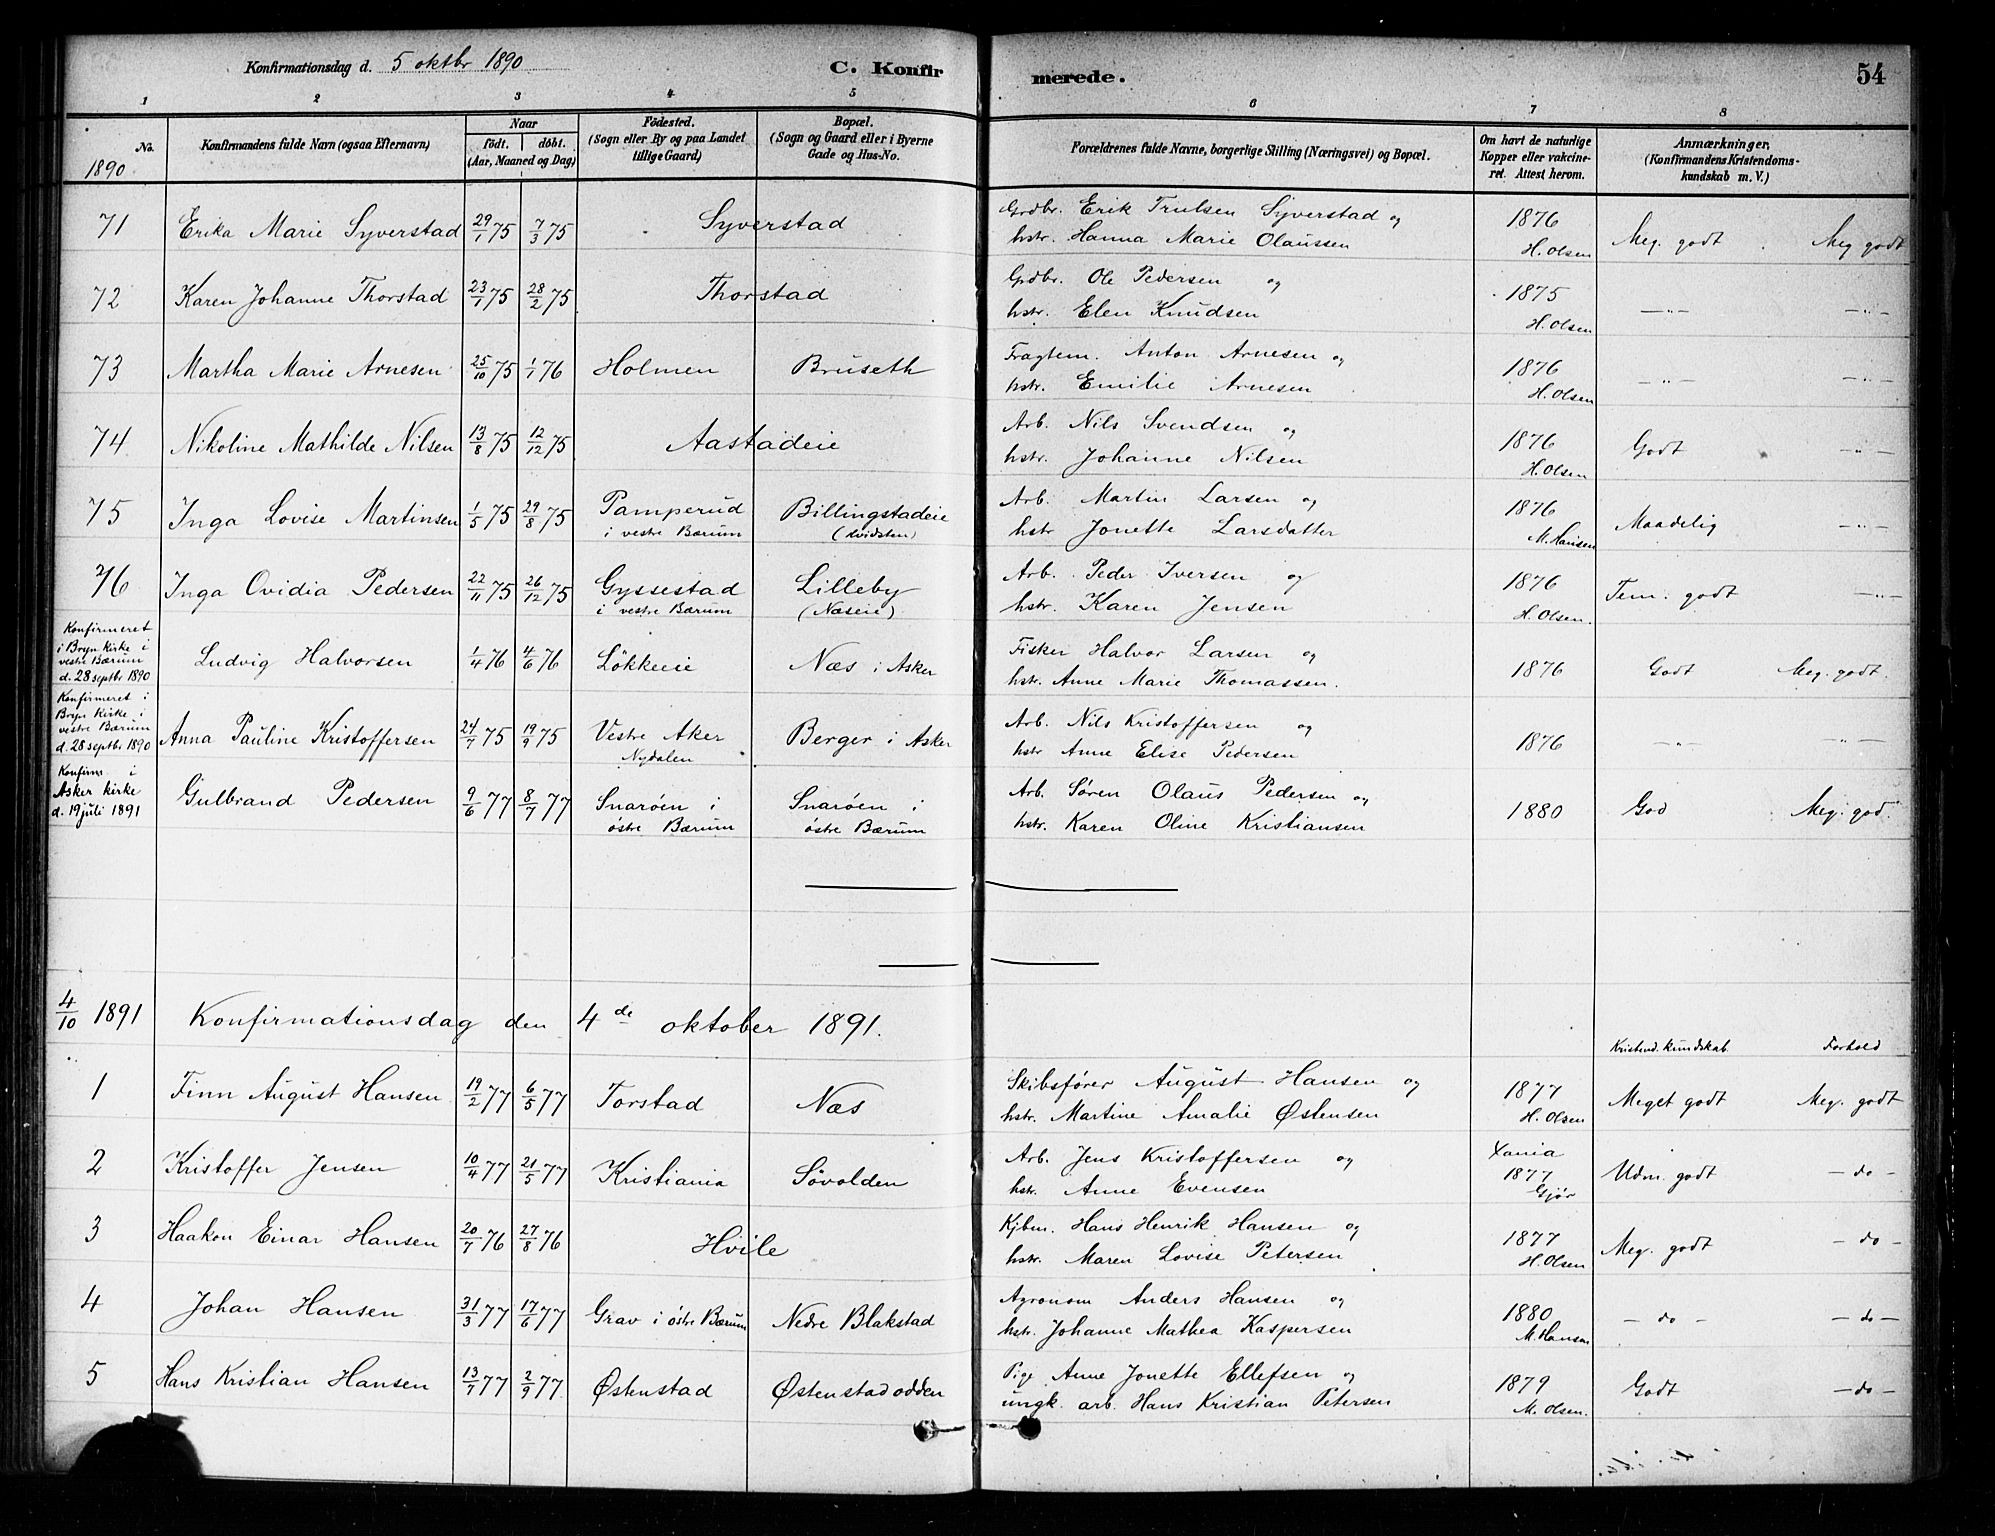 Konfirmationsdag d. 5 oktbr 1890
C. Konfirmerede.
54
1 2 3 4 5 6 7 8
No.
1890
Konfirmandens fulde Navn (ogsaa Efternavn)
Naar
födt. döbt.
(Aar, Maaned og Dag)
Födested.
(Sogn eller By og paa Landet
tillige Gaard)
Bopæl.
(Sogn og Gaard eller i Byerne
Gade og Hus-No.
Forældrenes fulde Navne, borgerlige Stilling (Næringsvei) og Bopæl.
Om havt de naturlige
Kopper eller vakcine-
ret. Attest herom.
Anmærkninger.
(Konfirmandens Kristendoms-
kundskab m. V.)
71 Erika Marie Syverstad 29/1 75 7/3 75 Syverstad Grdbr. Erik Trulsen Syverstad og 1876 Meg. godt Meg godt
hstr. Hanna Marie Olaussen H. Olsen
72 Karen Johanne Thorstad 23/1 75 28/2 75 Thorstad Grdbr. Ole Pedersen og 1875 —"— —"—
hstr. Elen Knudsen H. Olsen
73 Martha Marie Arnesen 25/10 75 1/1 76 Holmen Bruseth Fragtem. Anton Arnesen og 1876 —"— —"—
hstr. Emilie Arnesen H. Olsen
74 Nikoline Mathilde Nilsen 13/8 75 12/12 75 Aastadeie Arb. Nils Svendsen og 1876 Godt —"—
hstr. Johanne Nilsen H. Olsen
75 Inga Lovise Martinsen 1/5 75 29/8 75 Pamperud Billingstadeie Arb. Martin Larsen og 1876 Maadelig —"—
i vestre Bærum (Kvidsten) hstr Jonette Larsdatter M. Hansen
76 Inga Ovidia Pedersen 22/11 75 26/12 75 Gyssestad Lilleby Arb. Peder Iversen og 1876 Tem. godt —"—
i vestre Bærum (Næseie) hstr. Karen Jensen H. Olsen.
Konfirmeret
i Bryn kirke i
vestre Bærum
d. 28 septbr 1890
Ludvig Halvorsen 1/4 76 4/6 76 Lökkeeie Næs i Asker Fisker Halvor Larsen og 1876 Godt Meg. godt.
hstr. Anne Marie Thomassen.
Konfirmeret i
Bryn kirke i
vestre Bærum
d. 28 septbr 1890
Anna Pauline Kristoffersen 24/7 75 19/9 75 Vestre Aker Berger i Asker Arb. Nils Kristoffersen og 1876 —"— —"—
Nydalen hstr Anne Elise Pedersen
Konfirm. i
Asker kirke
d. 19 juli 1891
Gulbrand Pedersen 9/6 77 8/7 77 Snaröen i Snaröen i Arb. Sören Olaus Pedersen og 1880 God Meg. god.
östre Bærum östre Bærum hstr. Karen Oline Kristiansen
4/10 1891 Konfirmationsdag den 4de oktober 1891.
Kristend. kundskab. Forhold
1 Finn August Hansen 19/2 77 6/5 77 Torstad Næs Skibsförer August Hansen og 1877 Meget godt Meg. godt
hstr. Martine Amalie Østensen H. Olsen
2 Kristoffer Jensen 10/4 77 21/5 77 Kristiania Sövolden Arb. Jens Kristoffersen og Xania
1877 Udm. godt — do —
hstr. Anne Evensen Gjör
3 Haakon Einar Hansen 20/7 76 27/8 76 Hvile Kjbm. Hans Henrik Hansen og 1877 Meg. godt — do —
hstr. Maren Lovise Petersen H. Olsen
4 Johan Hansen 31/3 77 17/6 77 Grav i östre Bærum Nedre Blakstad Agronom Anders Hansen og 1880 — do — — do —
hstr. Johanne Mathea Kaspersen M. Hansen
5 Hans Kristian Hansen 13/7 77 2/9 77. Østenstad Østenstadodden Pige Anne Jonette Ellefsen og 1879 Godt — do —
ungk. arb. Hans Kristian Petersen M. Olsen.